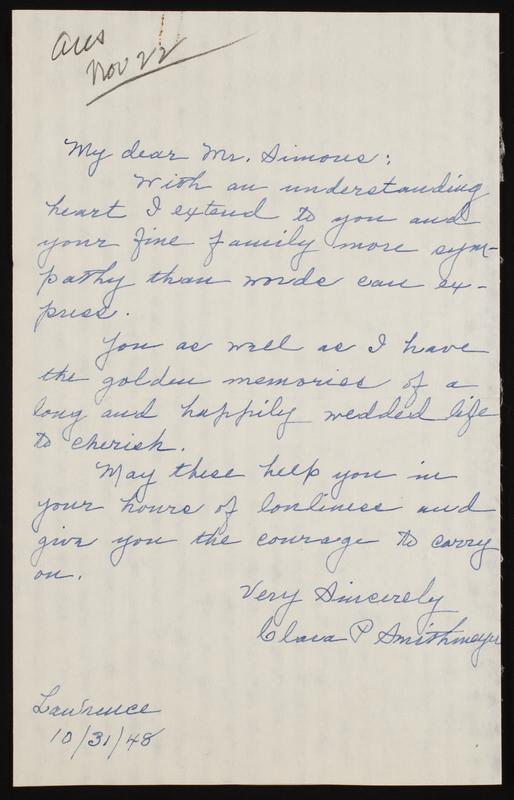 Ans
Nov 22
My dear Mr. Simons:
With an understanding
heart I extend to you and
your fine family more sym-
pathy than words can ex-
press.
You as well as I have
the golden memories of a
long and happily wedded life
to cherish.
May these help you in
your hours of lonliness and
give you the courage to carry
on.
Very Sincerely
Clara P Smithmeyer
Lawrence
10/31/48